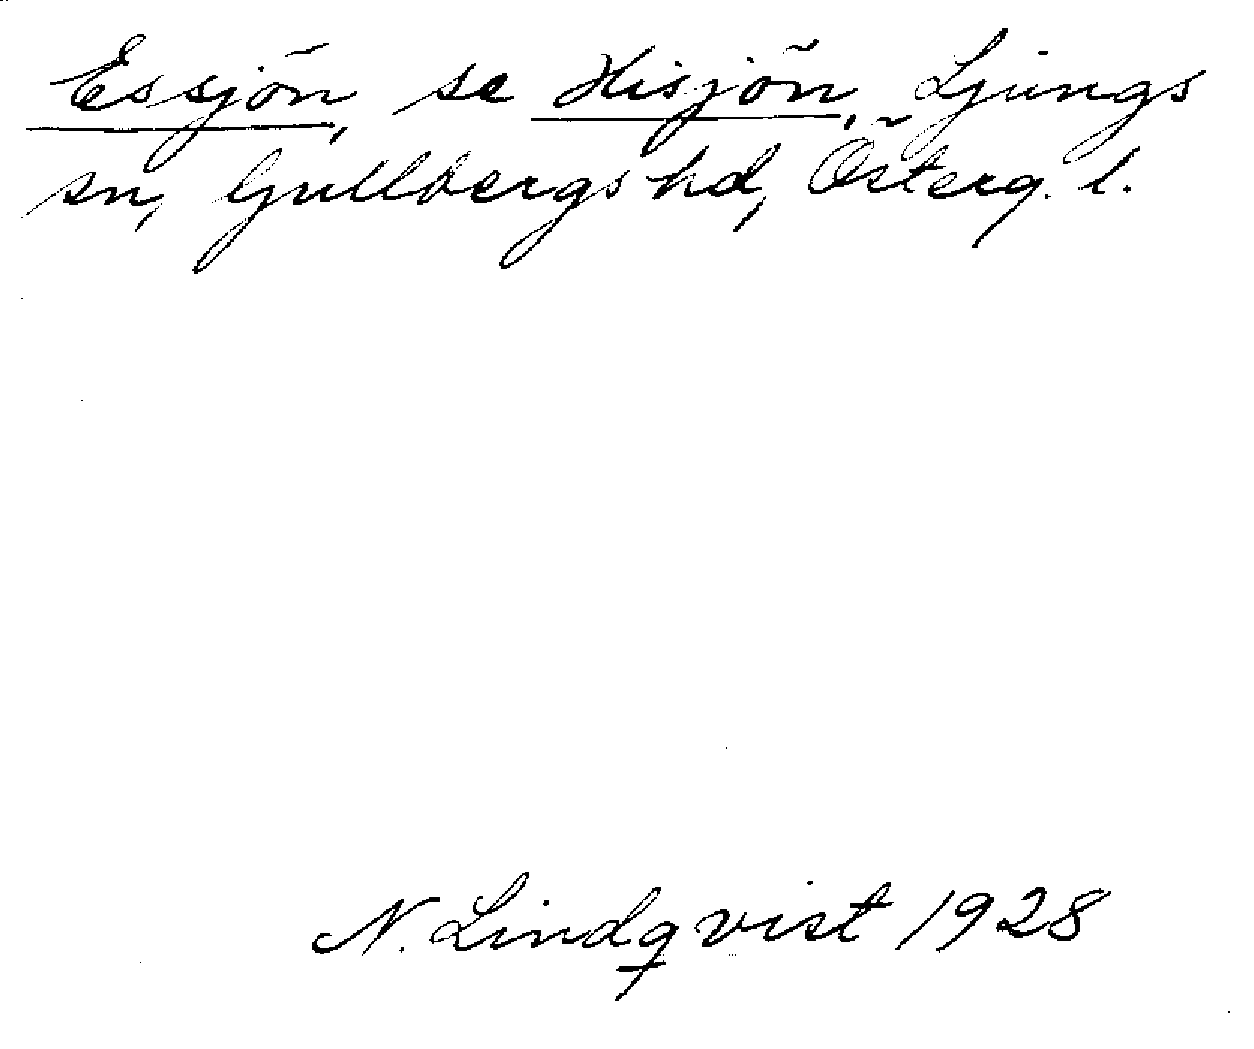 Essjön, se Hisjön, Ljungs
sn, Gullbergs hd, Österg. l.
N. Lindqvist 1928